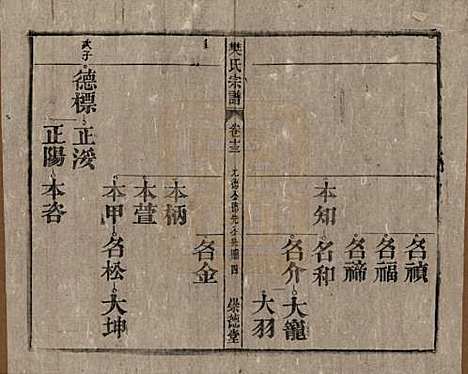 名禎
名福
名禘
本知
名和
名介
大龍
大羽
樊氏宗譜
卷十三
四
樂德堂
名金
本柄
本萱
本甲
名松
大坤
次子
德標
正湲
正陽
本容